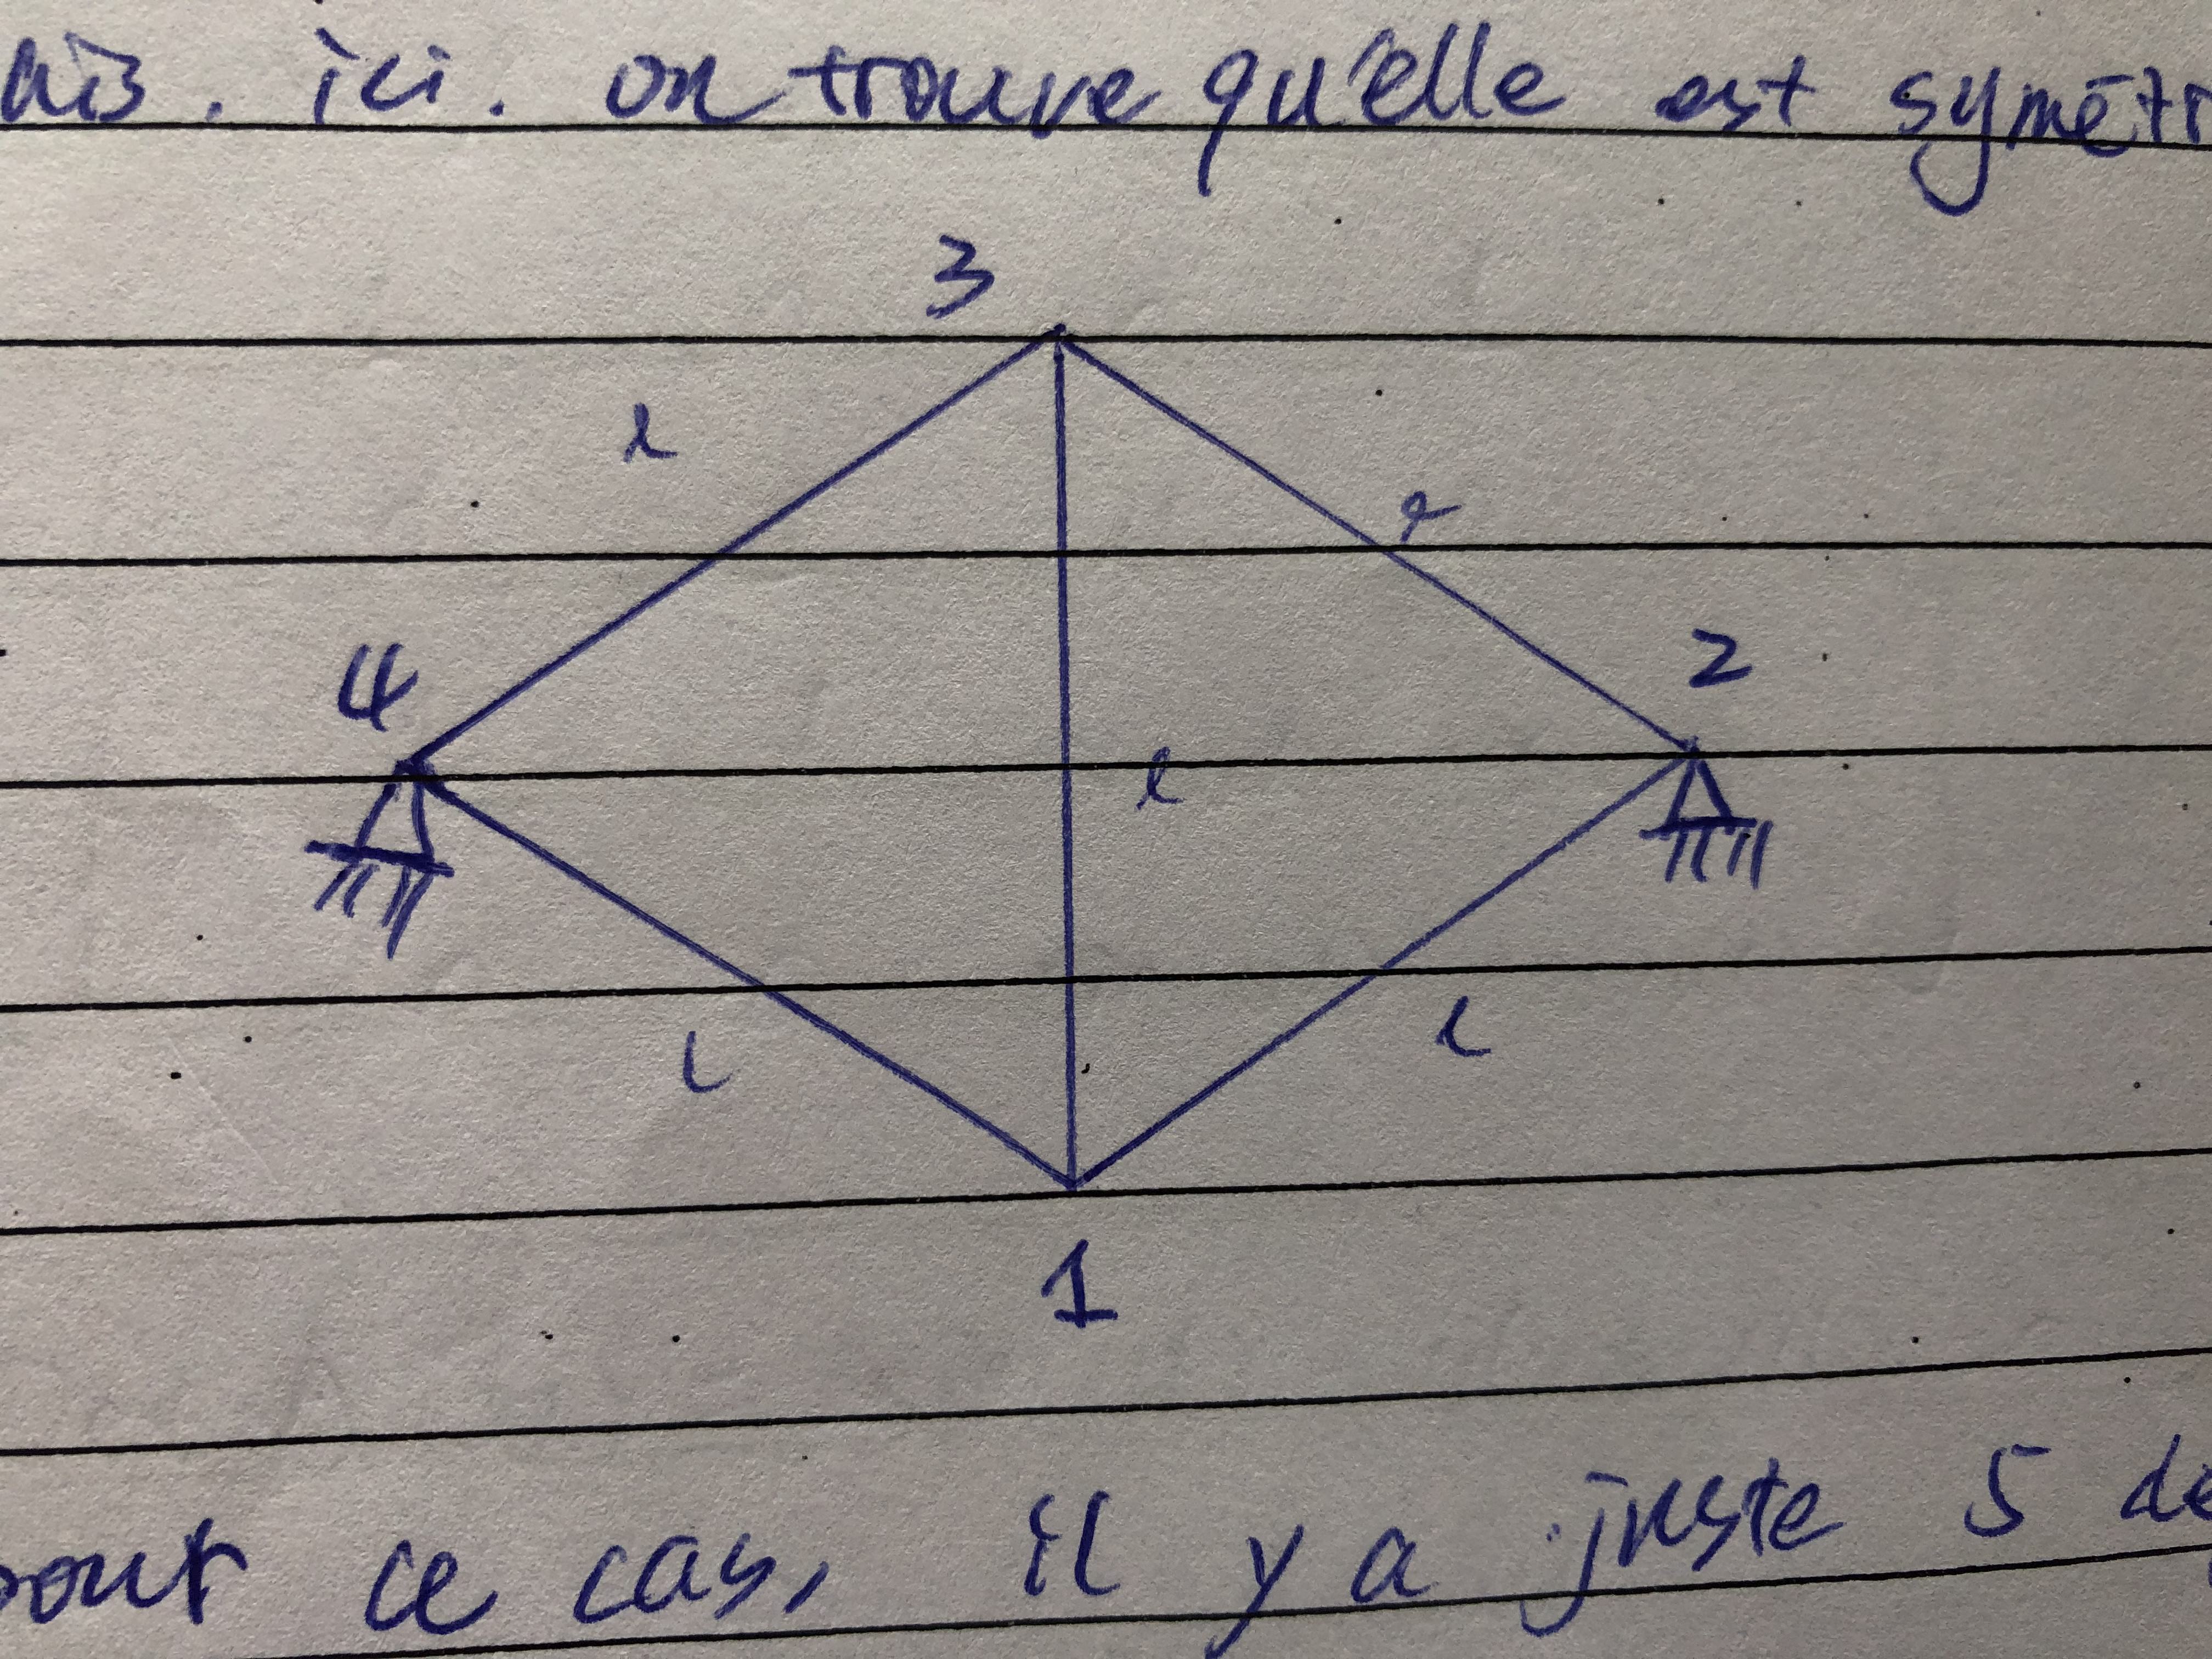 ici. on trouve qu'elle est symétr
3
l
l
4
2
l
l
l
1
pour ce cas, il y a juste 5 de